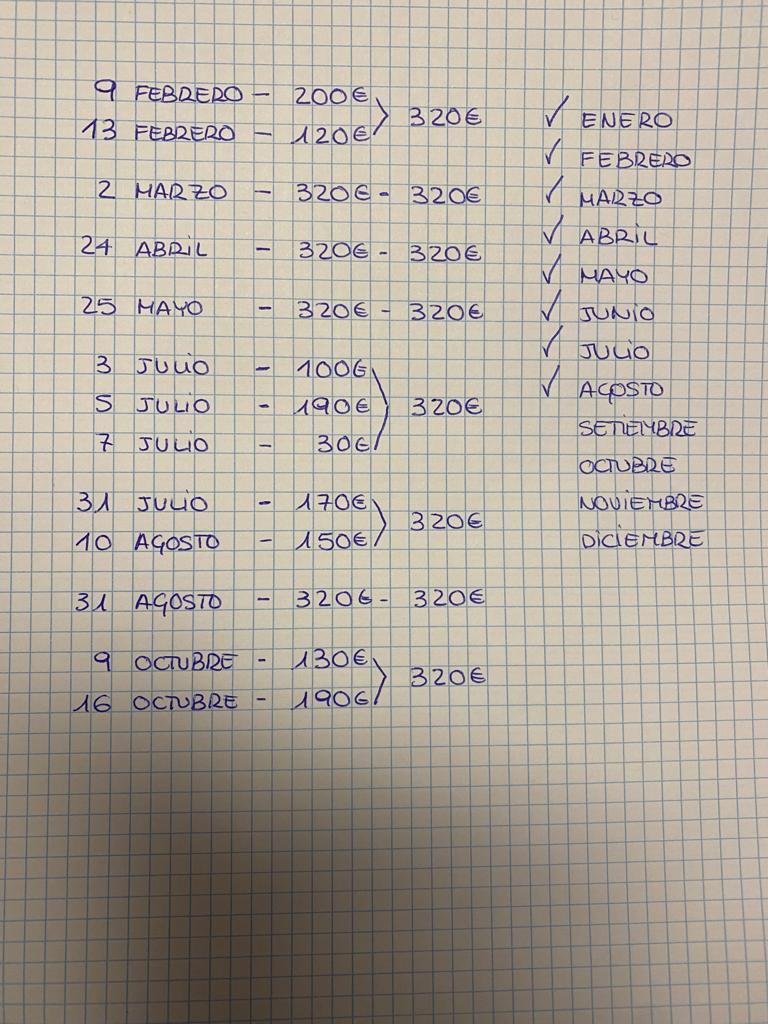 9 FEBRERO - 200€
13 FEBRERO - 120€ 320€
2 MARZO - 320€ - 320€
24 ABRIL - 320€ - 320€
25 MAYO - 320€ - 320€
3 JULIO - 100€
5 JULIO - 190€ 320€
7 JULIO - 30€
31 JULIO - 170€
10 AGOSTO - 150€ 320€
31 AGOSTO - 320€ - 320€
9 OCTUBRE - 130€
16 OCTUBRE - 190€ 320€
✓ ENERO
✓ FEBRERO
✓ MARZO
✓ ABRIL
✓ MAYO
✓ JUNIO
✓ JULIO
✓ AGOSTO
SETIEMBRE
OCTUBRE
NOVIEMBRE
DICIEMBRE